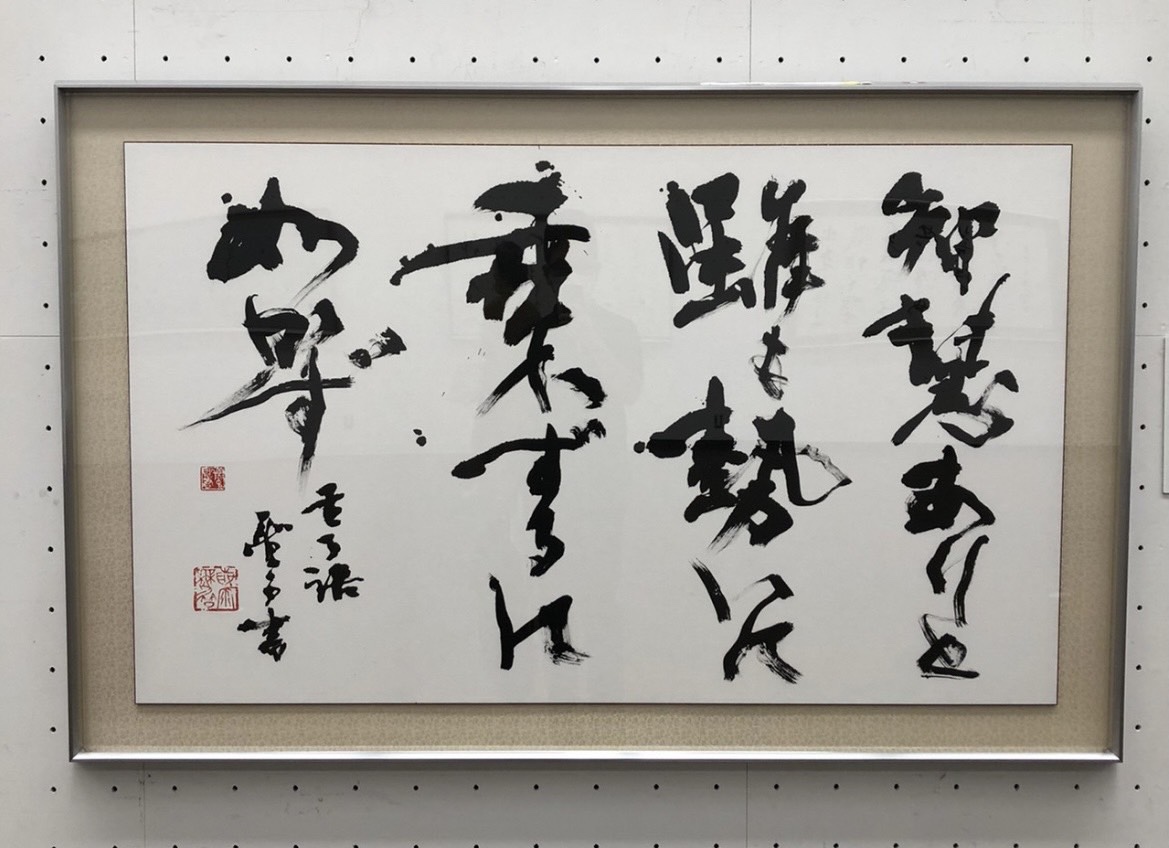 智慧ありと
雖も勢いに
乗ずるに
如かず
孟子語
聖子書